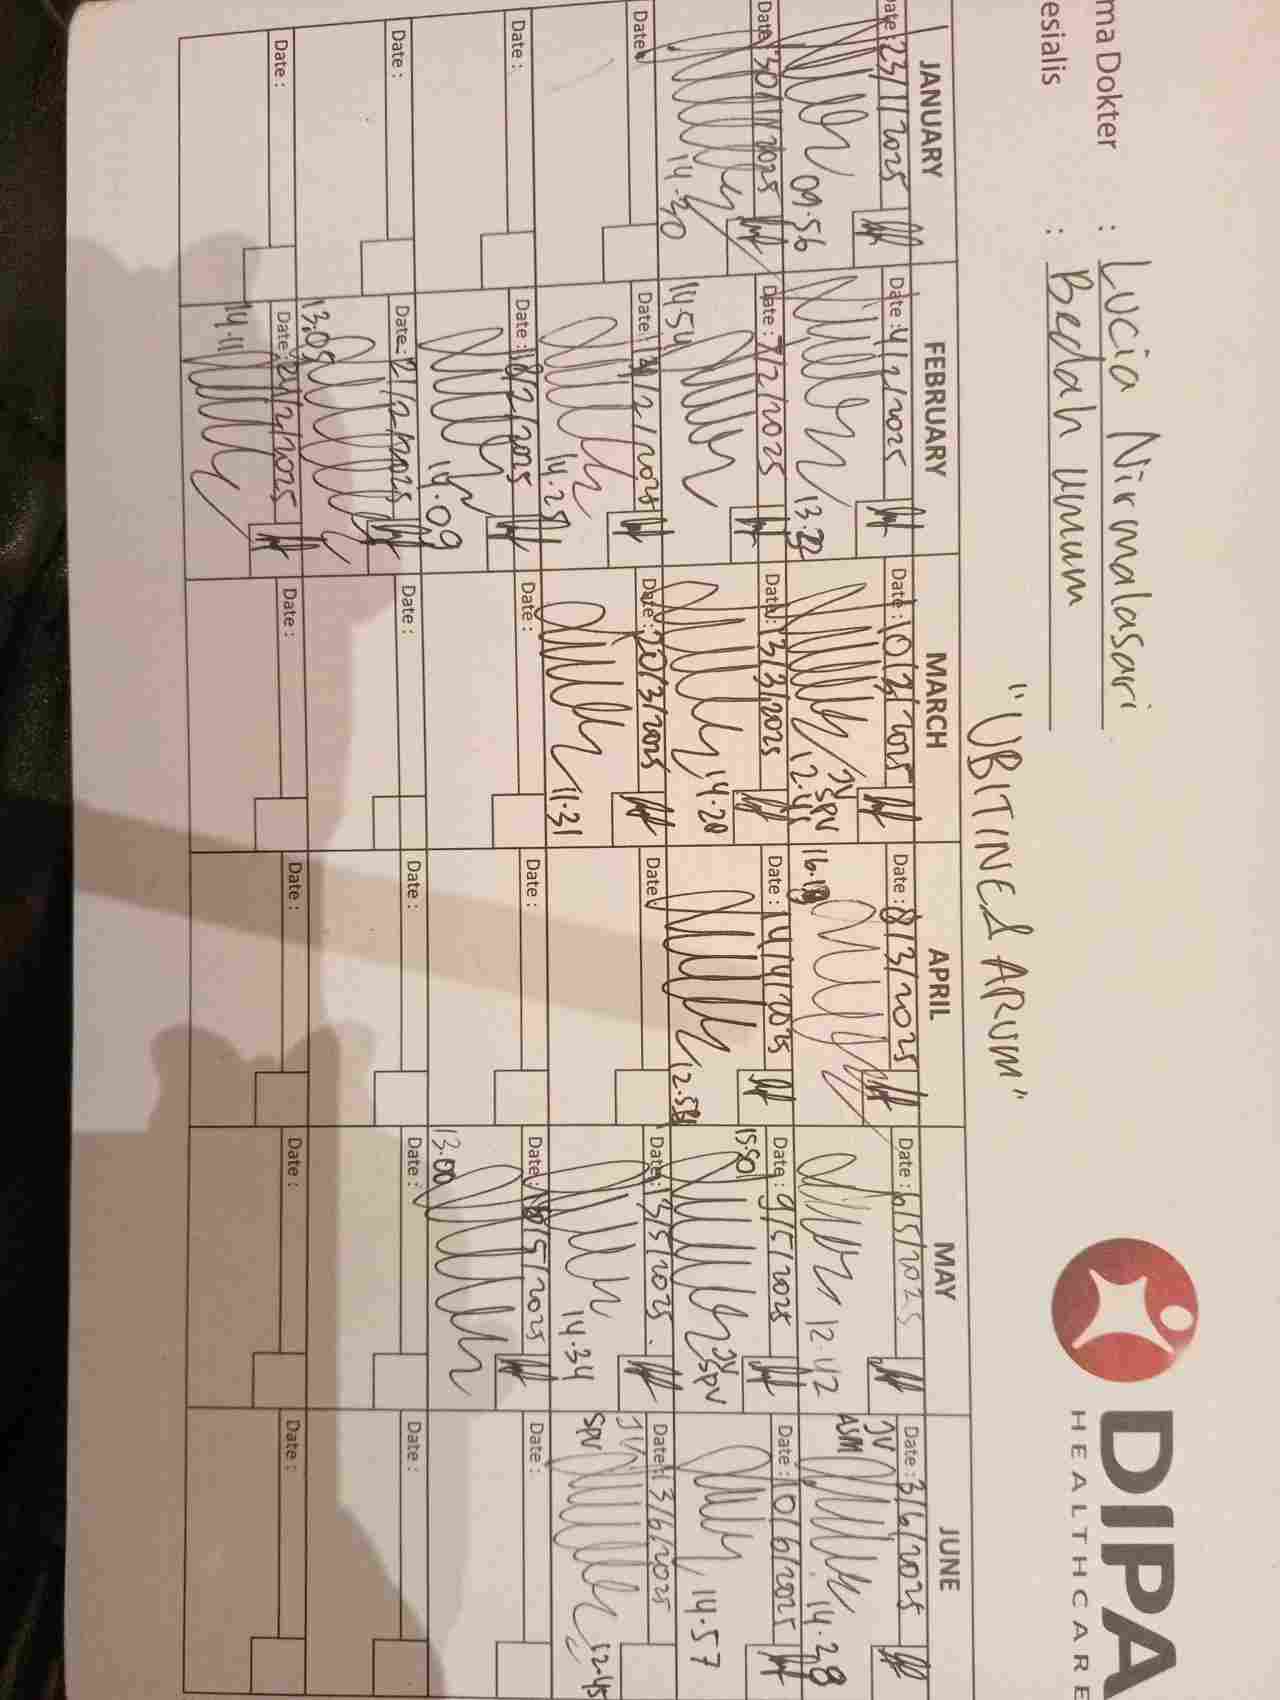 DIPA
HEALTHCARE
ma Dokter : Lucia Nirmalasari
esialis : Bedah Umum
"UBITINEL ARUM"
JANUARY FEBRUARY MARCH APRIL MAY JUNE
Date : 23/1/2025 Date : 4/2/2025 Date : 10/3/2025 Date : 8/3/2025 Date : 6/5/2025 Date : 3/6/2025
09.56 13.22 JV SPV 12.45 16.18 12.42 JV ASM 14.38
Date : 30/1/2025 Date : 7/2/2025 Date : 13/3/2025 Date : 14/4/2025 Date : 9/5/2025 Date : 10/6/2025
14.30 11.54 14.20 12.58 15.50 JV SPV 14.57
Date : Date : /2/2025 Date : 20/3/2025 Date : Date : 13/5/2025 Date : 13/6/2025
14.25 11.31 14.34 JV SPV 12.45
Date : Date : 18/2/2025 Date : Date : Date : /5/2025 Date :
14.09 13.00
Date : Date : 21/2/2025 Date : Date : Date : Date :
13.05
Date : Date : 24/2/2025 Date : Date : Date : Date :
14.11